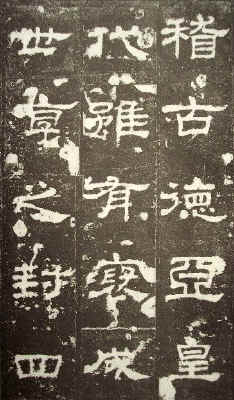 稽古德亞皇
代雖有褒成
世享之封四